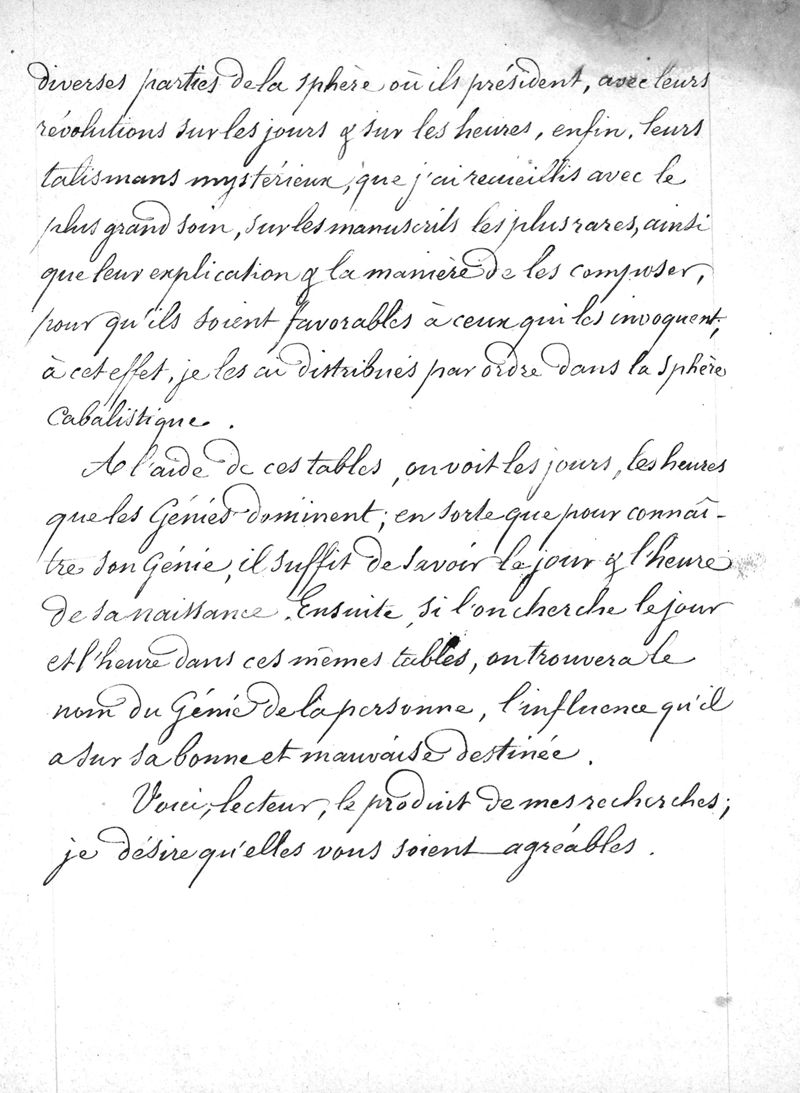 diverses parties de la sphère où ils président, avec leurs
révolutions sur les jours & sur les heures, enfin, leurs
talismans mystérieux, que j'ai recueillis avec le
plus grand soin, sur les manuscrits les plus rares, ainsi
que leur explication & la manière de les composer,
pour qu'ils soient favorables à ceux qui les invoquent;
à cet effet, je les ai distribués par ordre dans la sphère
Cabalistique.
A l'aide de ces tables, on voit les jours, les heures
que les Génies dominent; en sorte que pour connaî-
tre son Génie, il suffit de savoir le jour & l'heure
de sa naissance. Ensuite, si l'on cherche le jour
et l'heure dans ces mêmes tables, on trouvera le
nom du Génie de la personne, l'influence qu'il
a sur sa bonne et mauvaise destinée.
Voici, lecteur, le produit de mes recherches;
je désire qu'elles vous soient agréables.